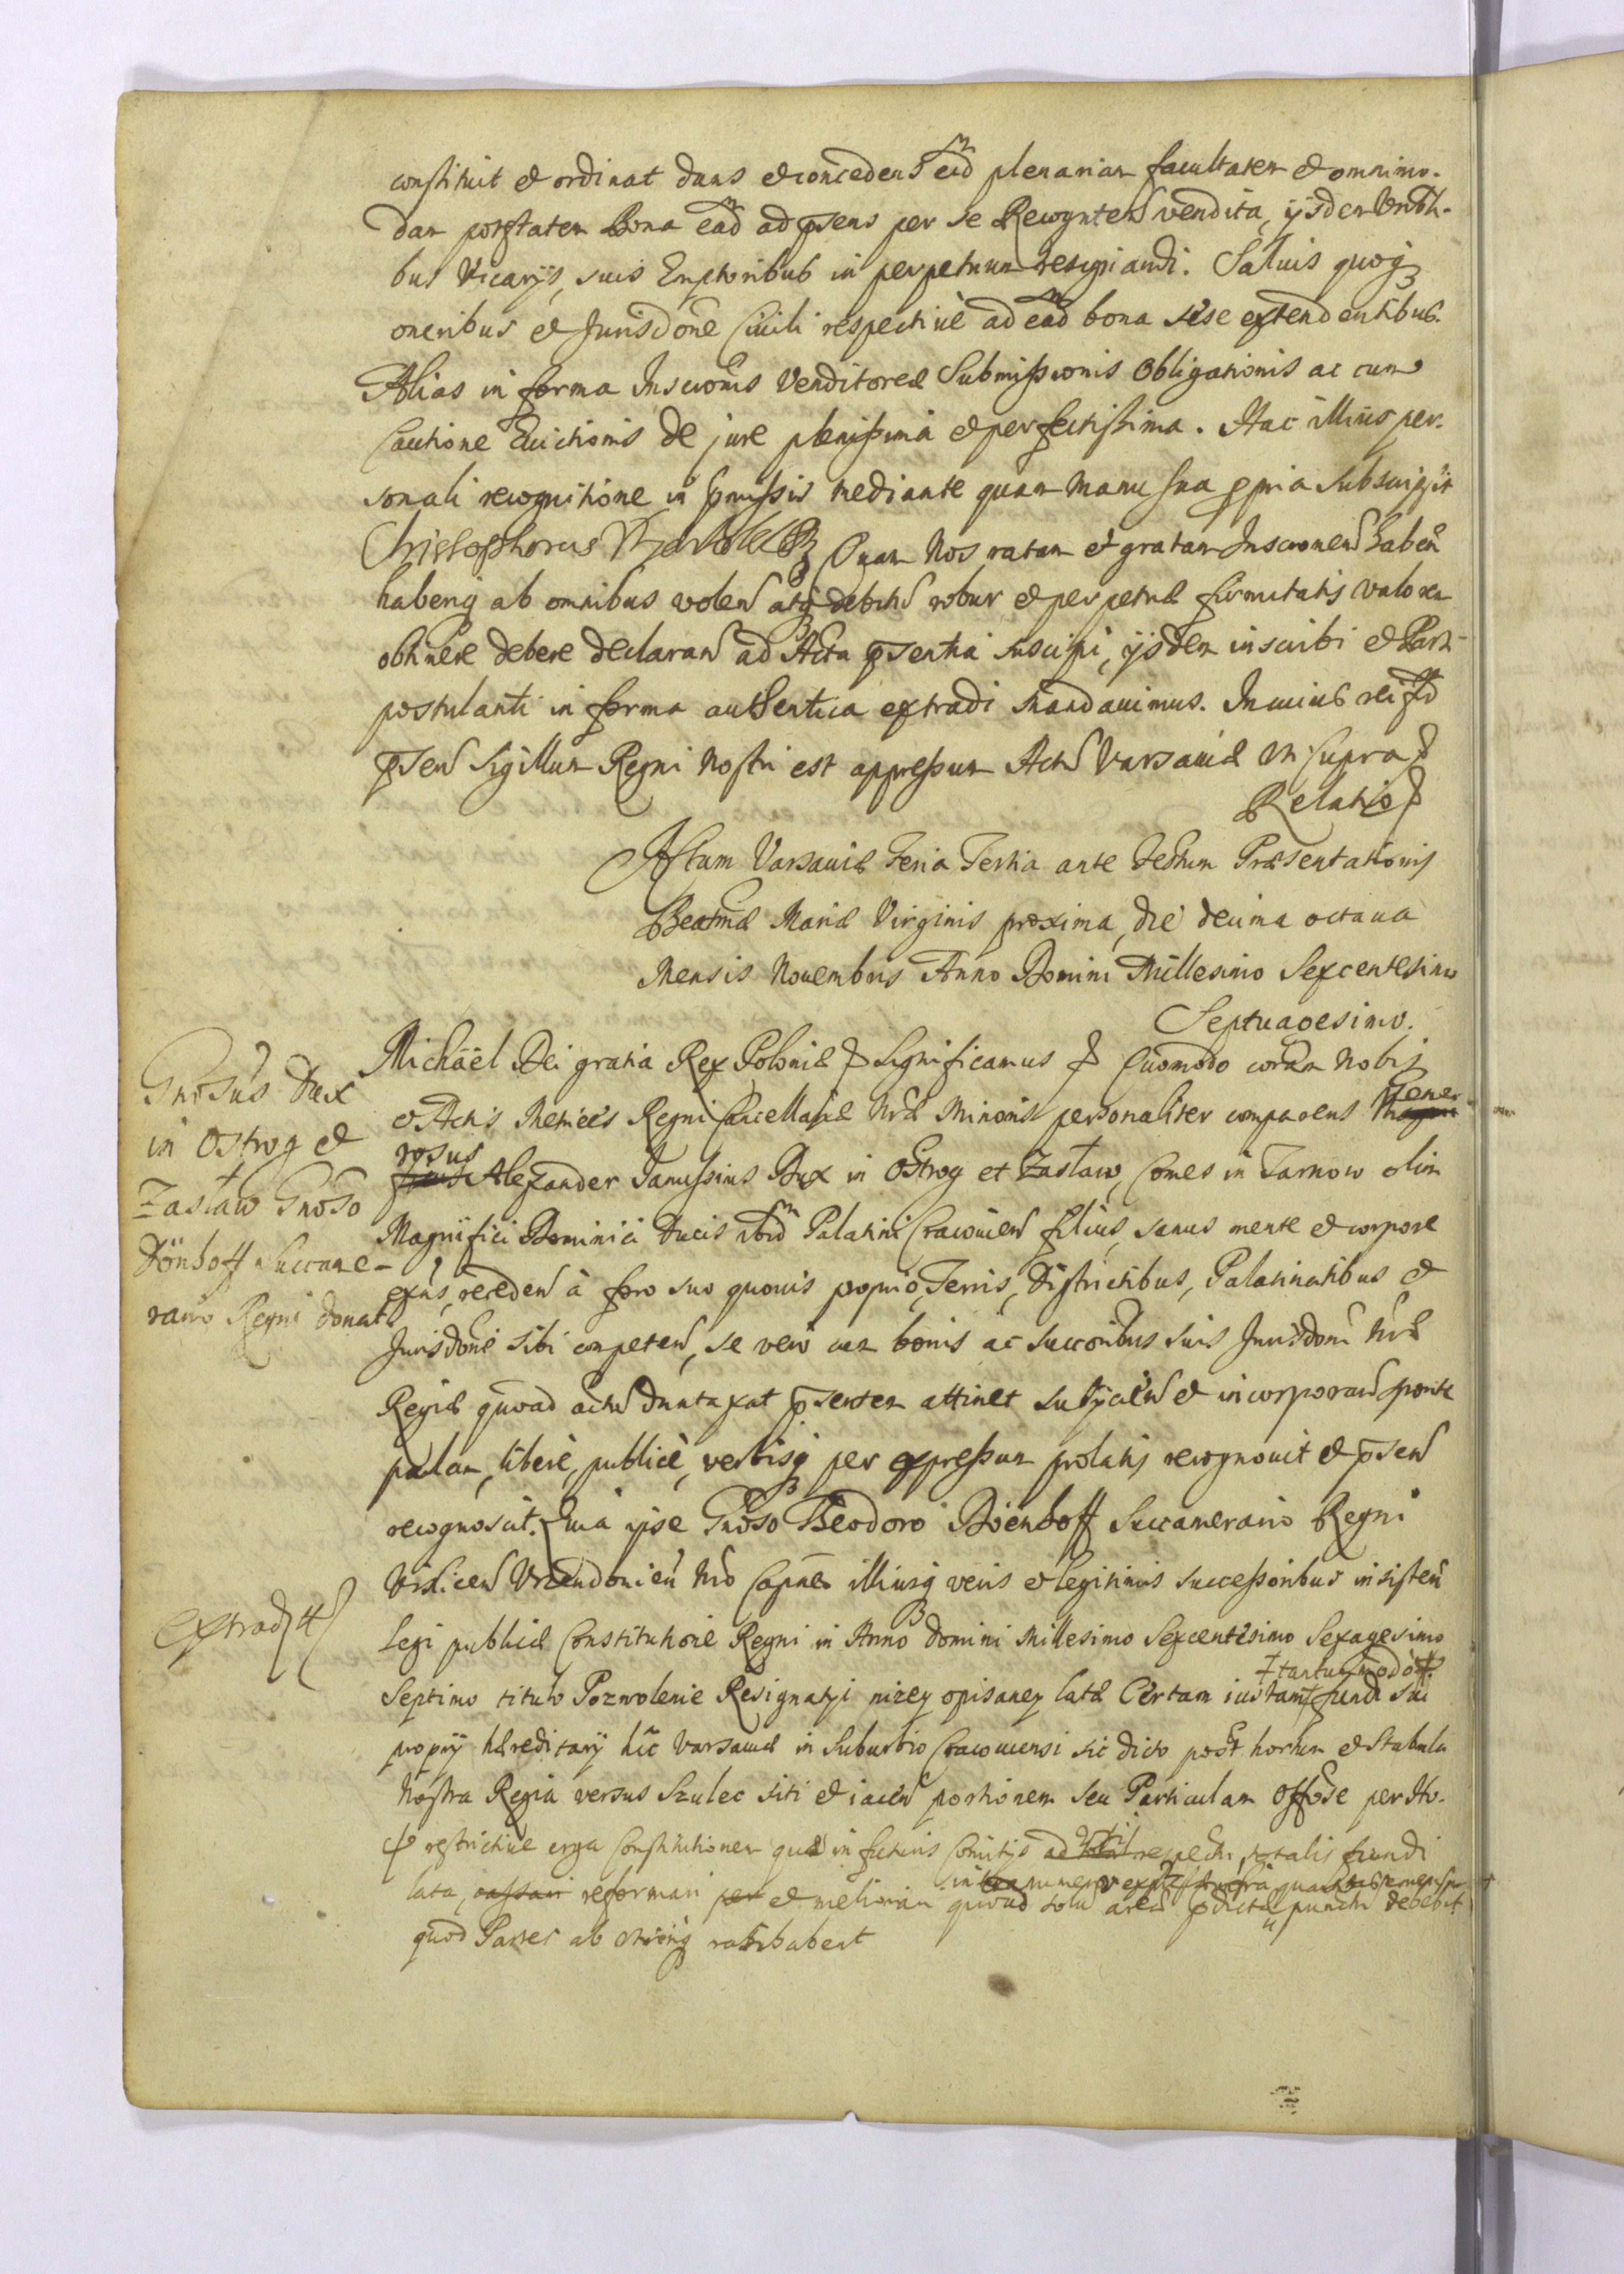 constituit et ordinat dans et concedens eid̃m plenariam facultatem et omnimo-
dam ptestatem Bona ead̃m ad p̃sens per se Recognten̄ vendita, ijsdem Urith-
bus Vicarijs, suis Emptoribus in perpetuum resignandi. Saluis quoq3
oneribus et Jurisdõne Ciuili respectiuè ad ead̃m bona sese extendentibus.
Alias in forma Inscrõnis Venditoreæ Submissionis Obligationis ac cum
Cautione Euictionis de jure plenissima et perfectissima. Hac illius per-
sonali recognitione in p̃missis mediante quam manu sua p̃pria subscripsit
Christophorus Quam Nos ratam et gratam Inscrõnem haben̄
haberiq ab omnibus volen̄ atq3 debitū robur et perpetuæ firmitatis valorem
obtinere debere declaran̄ ad Acta p̃sentia suscipi, ijsdem inscribi et Parti
postulanti in forma authentica extradi mandauimus. In cuius rei fid̃m
p̃sen̄ Sigillum Regni Nostri est appressum Actū Varsauiæ Ut supra
Relatio
Actum Varsauiæ Feria Tertia ante Festum Præsentationis
Beatmæ Mariæ Virginis proxima, die decima octaua
Mensis Nouembris Anno Domini Millesimo Sexcentesimo
Septuagesimo.
Gnõsus Dux
in Ostrog et
Zasław Gnõso
Dönhoff Succame-
rario Regni donat
Michaël Dei gratia Rex Poloniæ Significamus Quomodo coram Nobis
et Actis Metrices Regni Cancellariæ Nr̃æ Minoris personaliter comparens Gener
rosus Alexander Janussius Dux in Ostrog et Zasław, Comes in Tarnow olim
Magnifici Dominici Ducis ibid̃m Palatini Cracouien̄ filius, sanus mente et corpore
exñs, receden̄ à foro suo quouis proprio, Terris, Districtibus, Palatinatibus et
Jurisdõne sibi competen̄, se vero cum bonis ac succoribus suis Jurisdõni Nr̃æ
Regiæ quoad actū duntaxat p̃sentem attinet subijcien̄ et incorporan̄ sponte
palam, liberè, publicè, verbisq3 per expressum prolatis recognouit et p̃sen̄
recognoscit. Quia ipse Gnõso Theodoro Dönhoff Succamerario Regni
Visliceн Urzendouien̄ Nr̃o Capneo illiusq veris et legitimis successoribus insisten̄
Extradᵗᵗ
Legi publicæ Constitutione Regni in Anno Domini Millesimo Sexcentesimo Sexagesimo
Septimo titulo Pozwolenie Resignatyi nizey opisaney latæ Certam iustam tantummodo fundi sui
proprij hæreditarij hic Varsauiæ in Suburbio Cracouiensi sic dicto post hortum et Stabula
Nostra Regia versus Szulec siti et iacen̄ portionem seu Particulam Offõse per Ho-
restrictiuè erga Constitutionem quæ in futuris Comitijs ad respectū totalis fundi
lata, cassari reformari per et meliorari quoad totū areæ p̃dictæ punctū debebit
quod Partes ab utrinq ratihabent